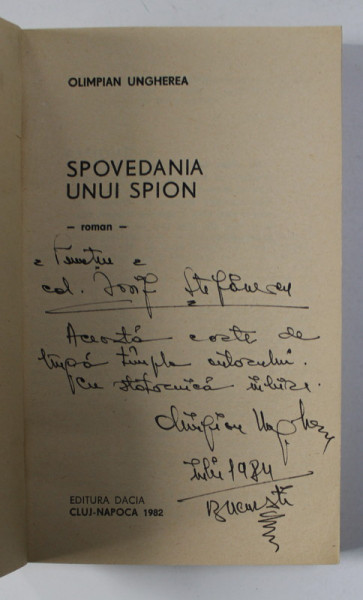 OLIMPIAN UNGHEREA
SPOVEDANIA
UNUI SPION
— roman —
col. Iosif Ștefănescu
Această carte de
lîngă tîmpla autorului.
Cu statornică iubire.
Olimpian Ungherea
iulie 1984
București
EDITURA DACIA
CLUJ-NAPOCA 1982